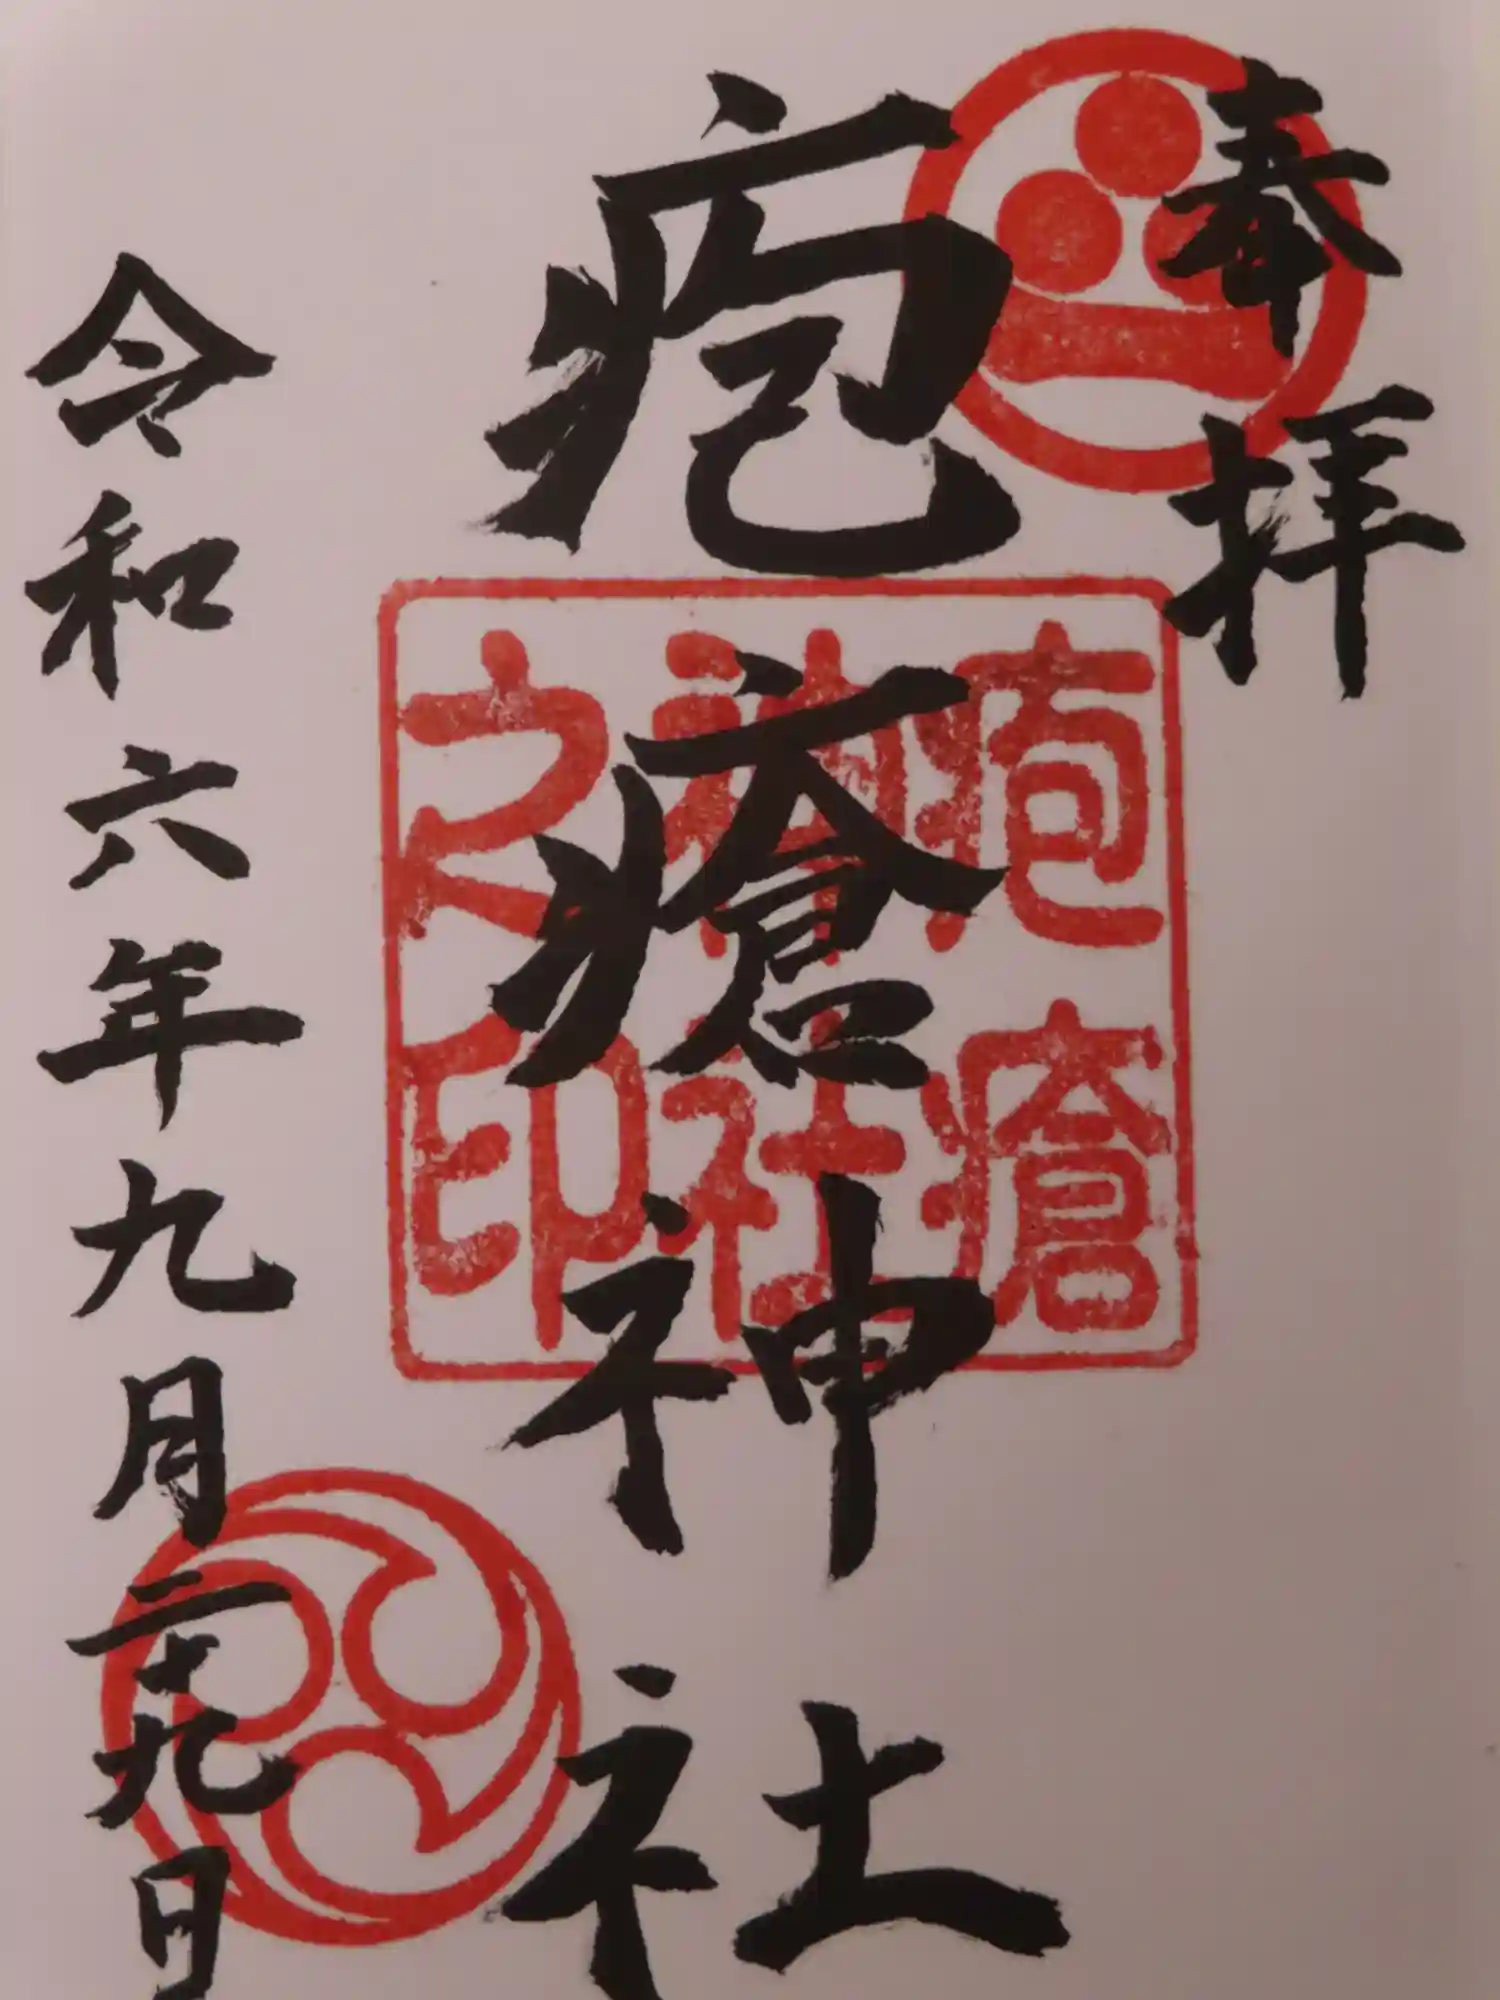 奉拝
疱瘡神社
疱瘡
神社
之印
令和六年九月二十九日